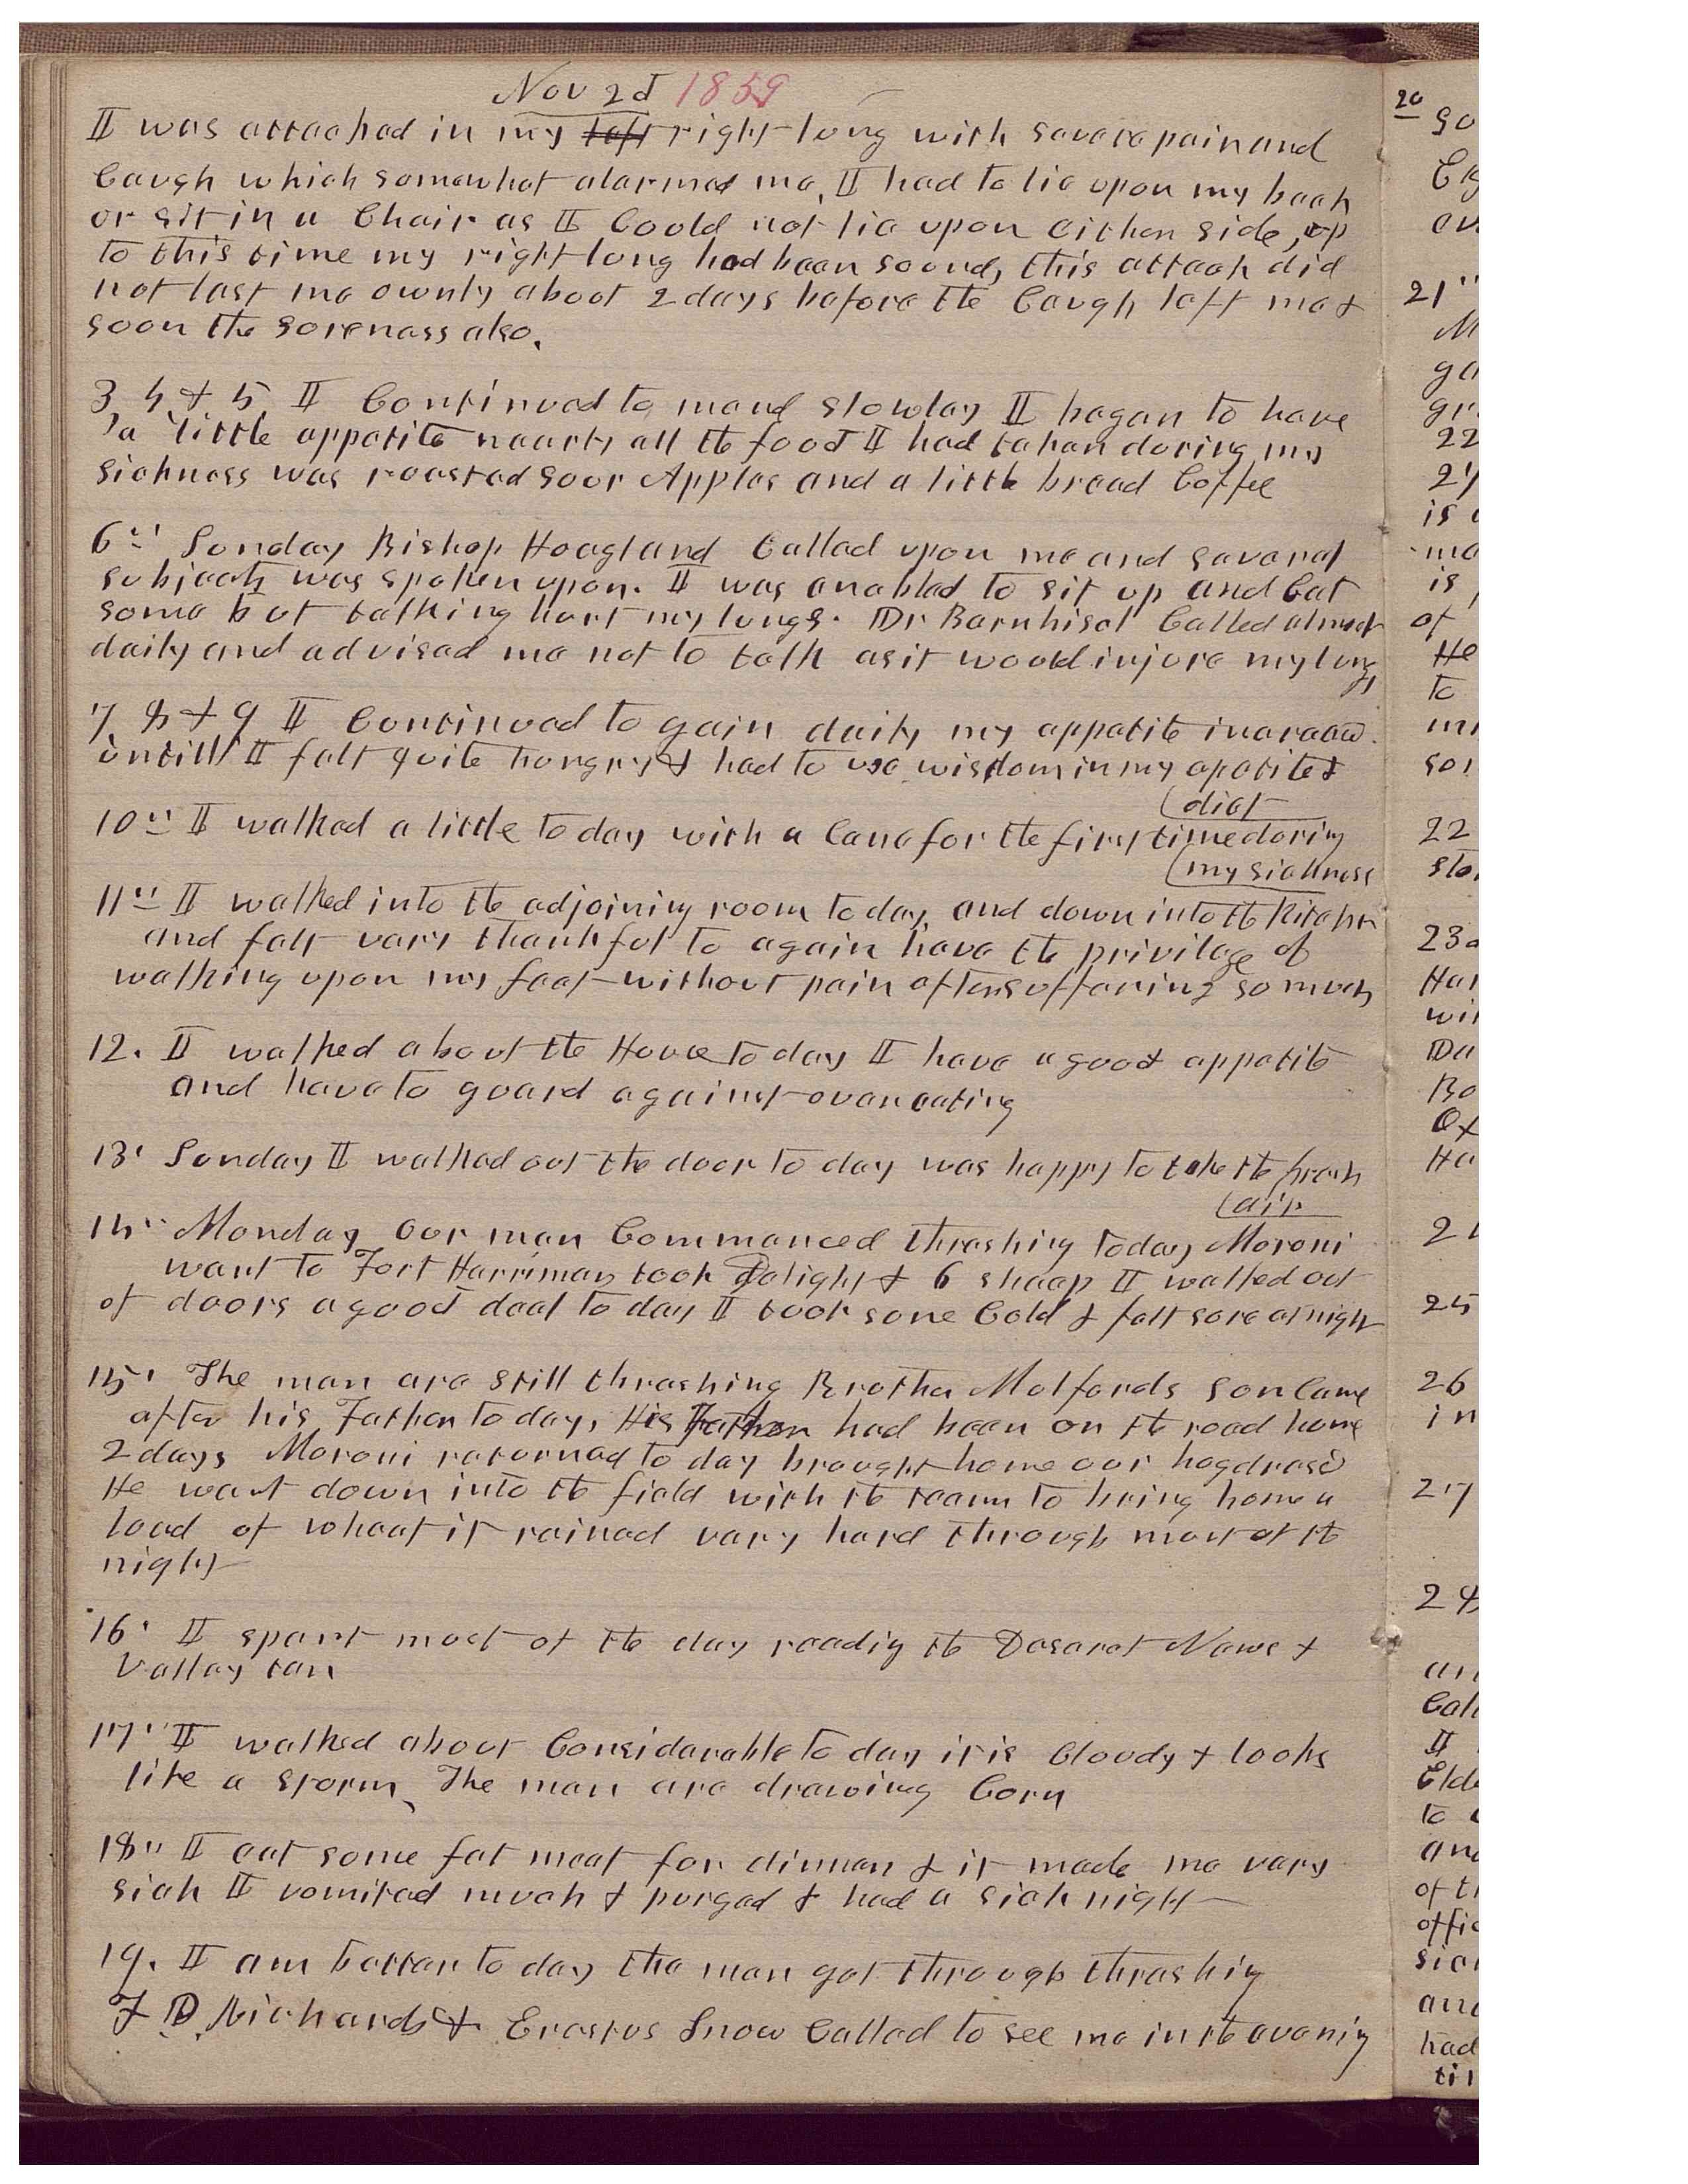 Nov 2d 1859
I was attacked in my left right lung with severe pain and
Caugh which somewhat alarmed me, I had to lie upon my back
or sit in a Chair as I Could not lie upon either side, up
to this time my right lung had been sound, this attack did
not last me ownly about 2 days before the Caugh left me &
soon the soreness also.
3, 4 & 5 I Continued to mend slowley I began to have
a little appetite nearly all the food I had taken during my
sickness was roasted sour Apples and a little bread Coffee
6" Sunday Bishop Hoagland Called upon me and several
subjects was spoken upon. I was enabled to sit up and Eat
some but talking hurt my lungs. Dr Barnhisel Called almost
daily and advised me not to talk as it would injure my lungs
7, 8 & 9 I Continued to gain daily my appetite increased
untill I felt quite hungry & had to use wisdom in my apetite &
(diet
10" I walked a little to day with a Cane for the first time during
(my sickness
11" I walked into the adjoining room to day, and down into the Kitchen
and felt very thankful to again have the privilege of
walking upon my feet without pain after suffering so much
12. I walked about the House to day I have a good appetite
and have to guard against over eating
13" Sunday I walked out the door to day was happy to take the fresh
(air
14" Monday Our men Commenced thrashing to day Moroni
went to Fort Harriman took Delight & 6 sheep I walked out
of doors a good deal to day I took some Cold & felt sore at night
15" The men are still thrashing Brother Molfords son Came
after his Father to day, His Father had been on the road home
2 days Moroni returned to day brought home our hog dressed
He went down into the field with the team to bring home a
load of wheat it rained very hard through most of the
night
16" I spent most of the day readig the Deseret News &
Valley tan
17" I walked about Considerable to day it is Cloudy & looks
like a storm, The men are drawing Corn
18" I eat some fat meat for dinner & it made me very
sick I vomited much & purged & had a sick night
19. I am better to day the men got through thrashig
F D. Richards & Erastus Snow Called to see me in the evenig